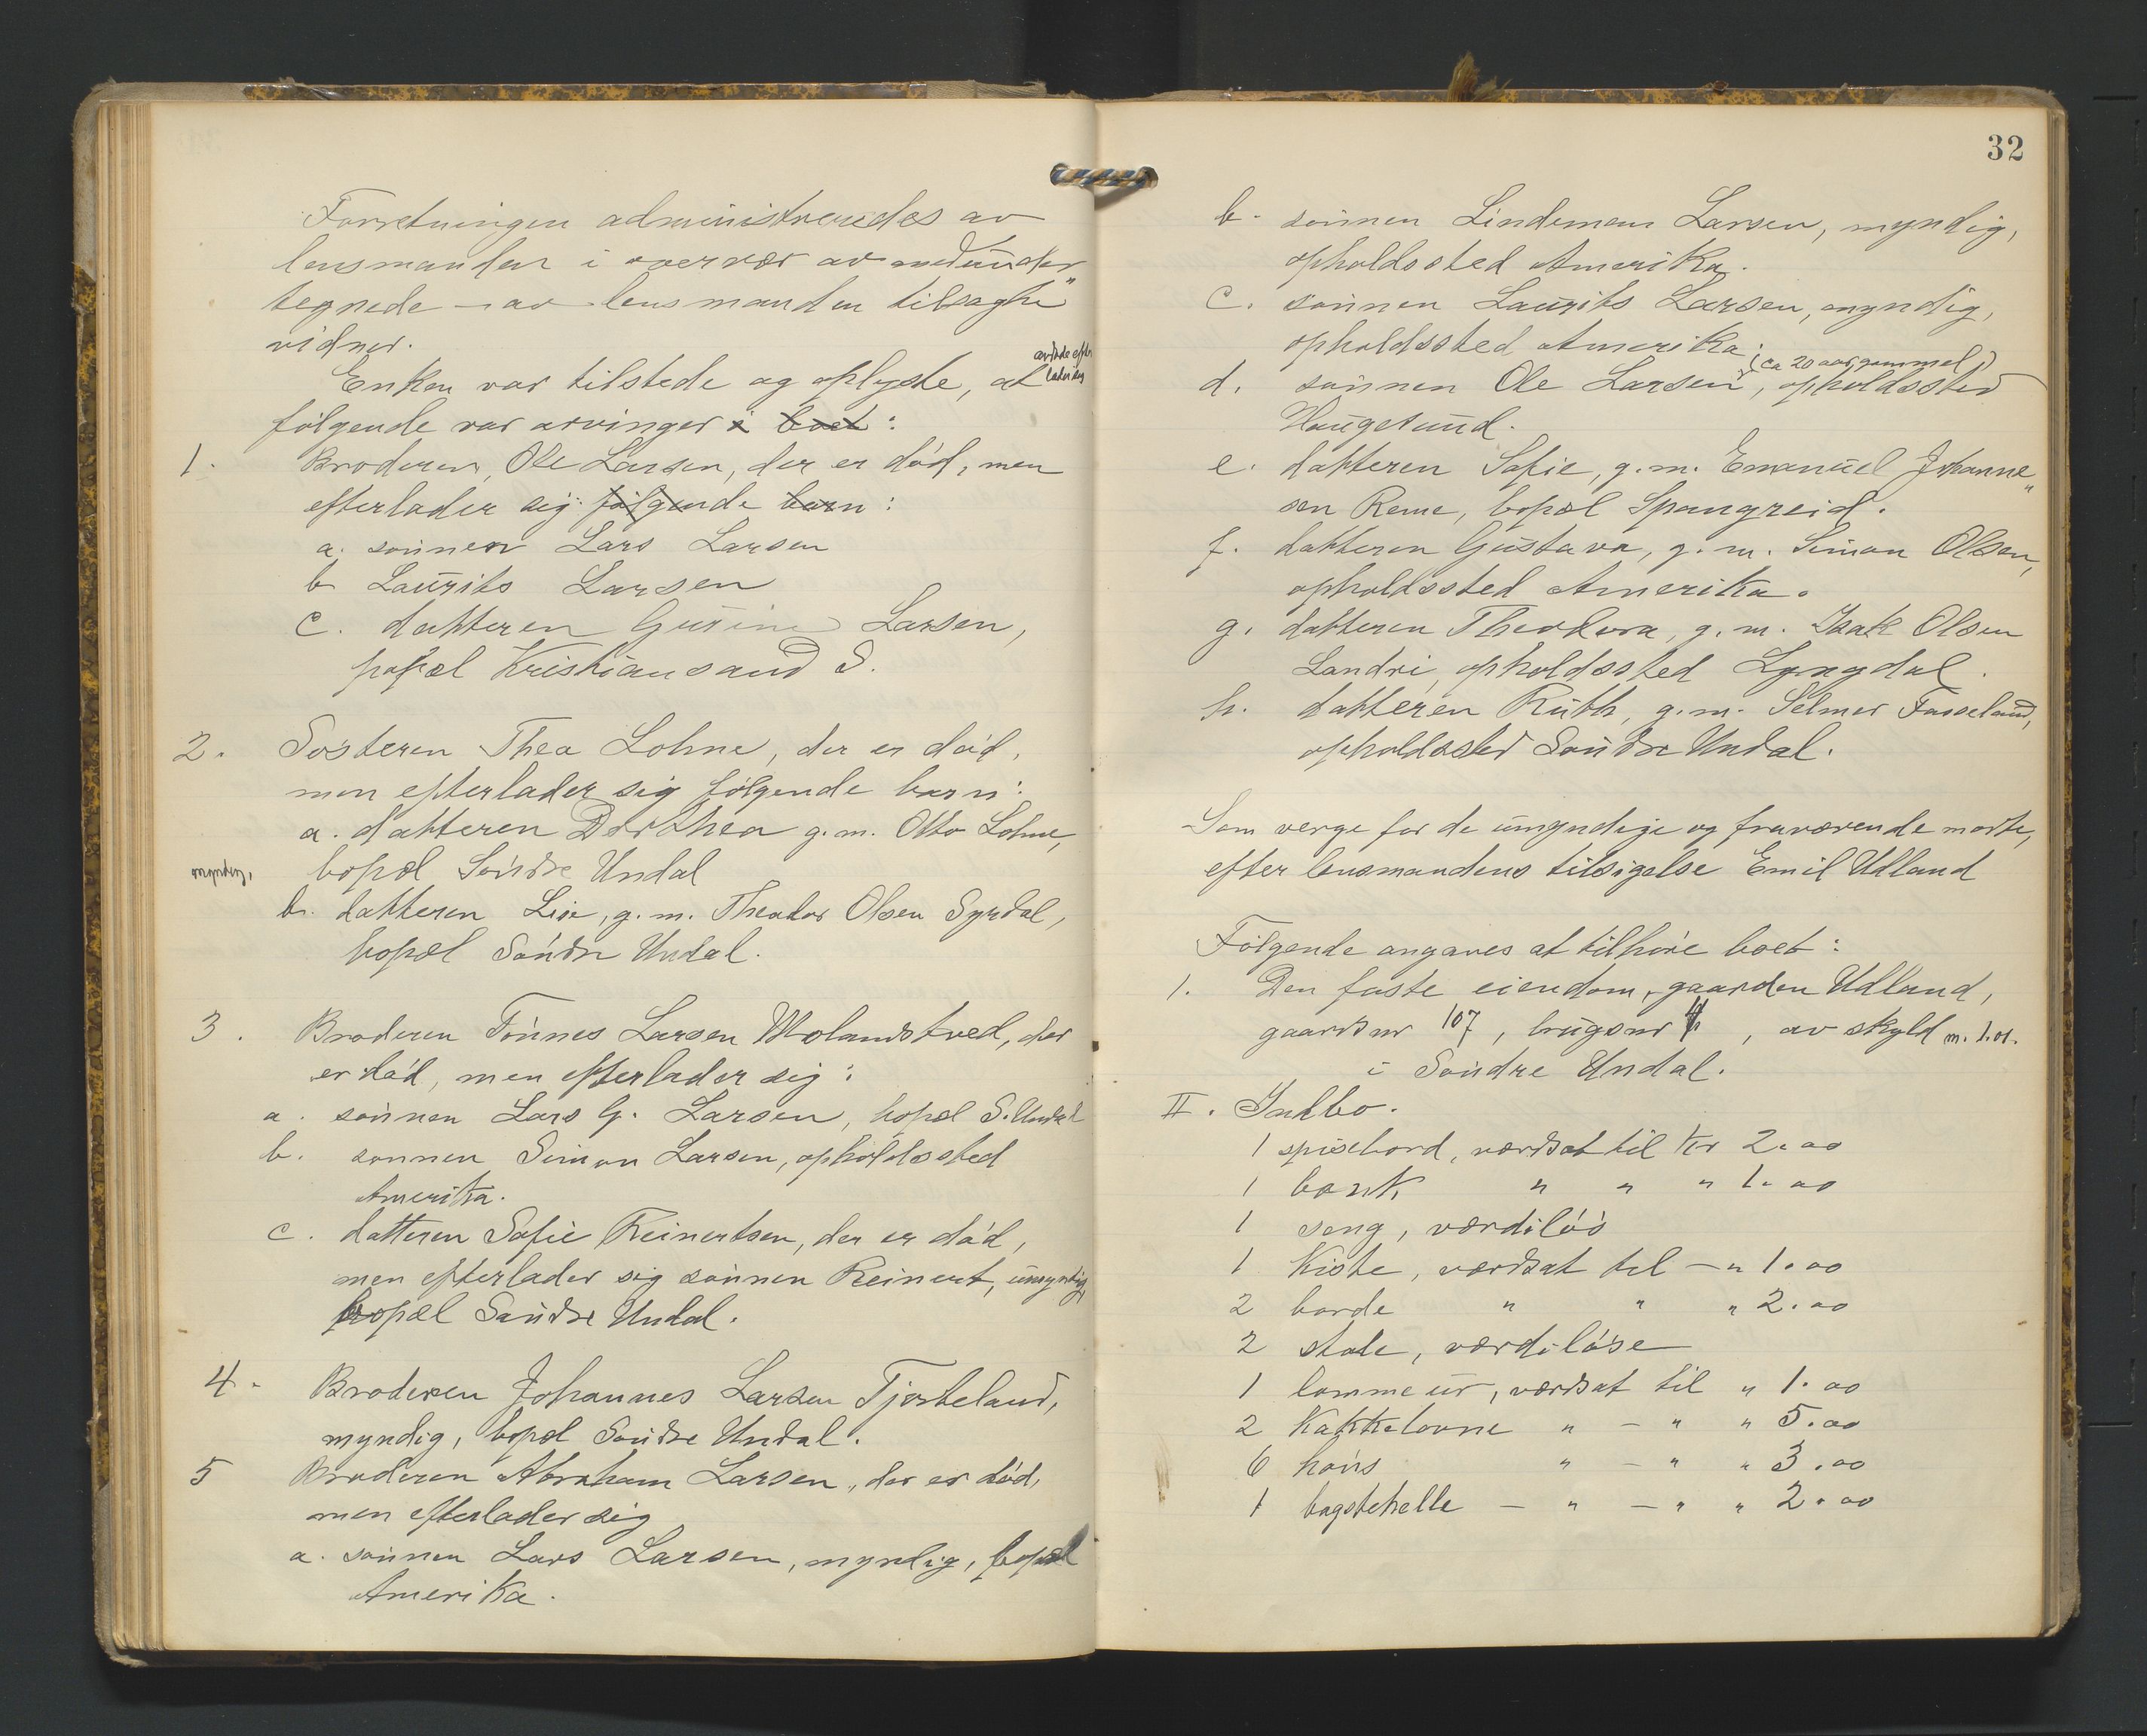 Forretningen administreredes av
lensmanden i overvær av medunder„
tegnede – av lensmanden tilsagte
vidner.
Enken var tilstede og oplyste, at
følgende var arvinger i boet:
1. Broderen, Ole Larsen, der er død, men
efterlader sig: følgende barn:
a. sønnen Lars Larsen
b Laurits Larsen
c. datteren Gurine Larsen,
bopæl Kristiansand S.
2. Søsteren Thea Lohne, der er død,
men efterlader sig følgende barn:
a. datteren Dorthea g.m. Otto Lohne,
myndig, bopæl Søndre Undal
b. datteren Lise, g.m. Theodor Olsen Syrdal,
bopæl Søndre Undal.
3. Broderen Tønnes Larsen Molandstved, der
er død, men efterlader sig:
a. sønnen Lars G. Larsen, bopæl S. Undal
b. sønnen Simon Larsen, opholdssted
Amerika.
c. datteren Sofie Reinertsen, der er død,
men efterlader sig sønnen Reinert, umyndig,
bopæl Søndre Undal.
4. Broderen Johannes Larsen Tjørteland,
myndig, bopæl Søndre Undal.
5 Broderen Abraham Larsen, der er død,
men efterlader sig
a. sønnen Lars Larsen, myndig, bopæl
Amerika.
32
b. sønnen Lindeman Larsen, myndig,
opholdssted Amerika.
c. sønnen Laurits Larsen, myndig,
opholdssted Amerika.
(ca 20 aar gammel)
d. sønnen Ole Larsen, opholdssted
Haugesund.
e. datteren Sofie, g.m. Emanuel Johanne„
sen Reme, bopæl Spangreid.
f. datteren Gustava, g.m. Simon Olsen,
opholdssted Amerika.
g. datteren Theodora, g.m. Isak Olsen
Landri, opholdssted Lyngdal.
h. datteren Ruth, g.m. Selmer Fasseland,
opholdssted Søndre Undal.
Som verge for de umyndige og fraværende møtte,
efter lensmandens tilsigelse Emil Udland
Følgende angaves at tilhøre boet:
1. Den faste eiendom, gaarden Udland,
gaardsnr 107, brugsnr 4, av skyld m. 1.01.
i Søndre Undal.
II. Indbo.
1 spisebord, værdsat til kr 2.00
1 bænk " " " 1.00
1 seng, værdiløs
1 kiste, værdsat til – " 1.00
2 borde " " " 2.00
2 stole, værdiløse
1 lommeur, værdsat til " 1.00
2 kakkelovne " – " " 5.00
6 høns " – " " 3.00
1 bagstehelle – " – " " 2.00